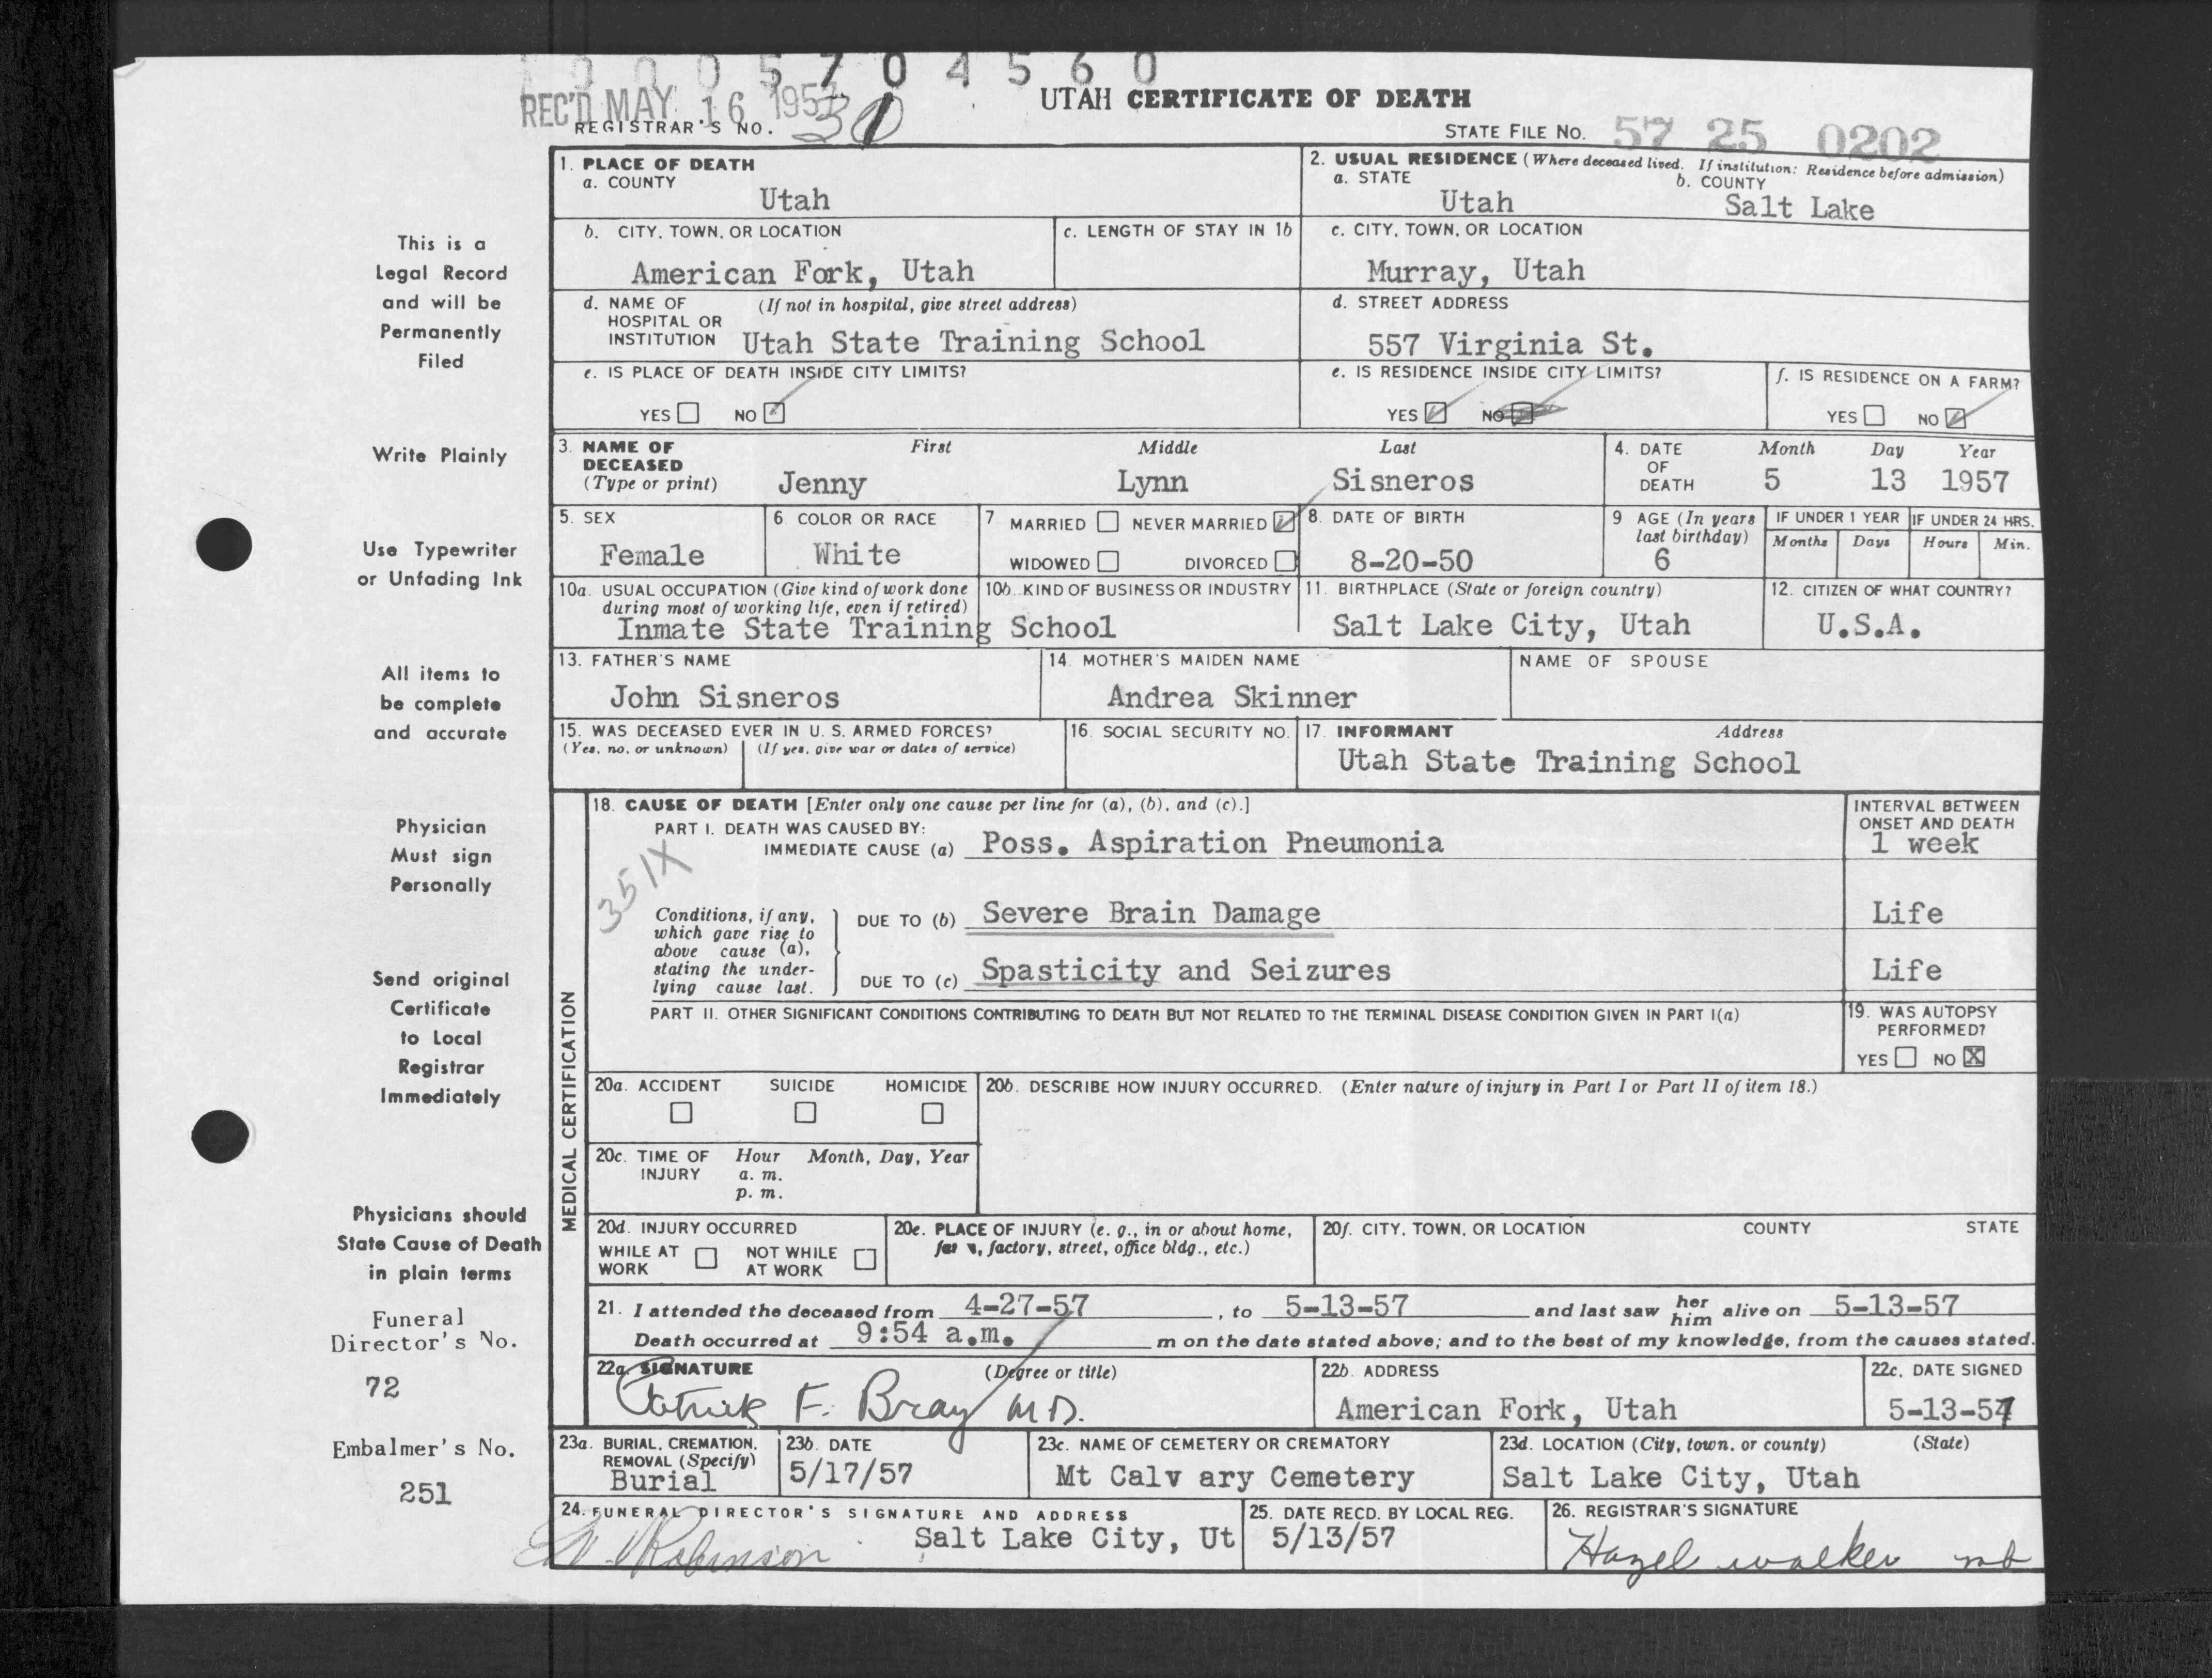 0 0 0 5 7 0 4 5 6 0
REC'D MAY 16 1957
UTAH CERTIFICATE OF DEATH
REGISTRAR'S NO.
STATE FILE NO. 57 25 0202
This is a
Legal Record
and will be
Permanently
Filed
Write Plainly
Use Typewriter
or Unfading Ink
All items to
be complete
and accurate
Physician
Must sign
Personally
Send original
Certificate
to Local
Registrar
Immediately
Physicians should
State Cause of Death
in plain terms
Funeral
Director's No.
72
Embalmer's No.
251
1. PLACE OF DEATH
a. COUNTY
Utah
2. USUAL RESIDENCE (Where deceased lived. If institution: Residence before admission)
a. STATE
Utah
b. COUNTY
Salt Lake
b. CITY, TOWN, OR LOCATION
American Fork, Utah
c. LENGTH OF STAY IN 1b
c. CITY, TOWN, OR LOCATION
Murray, Utah
d. NAME OF (If not in hospital, give street address)
HOSPITAL OR
INSTITUTION Utah State Training School
d. STREET ADDRESS
557 Virginia St.
e. IS PLACE OF DEATH INSIDE CITY LIMITS?
YES NO
e. IS RESIDENCE INSIDE CITY LIMITS?
YES NO
f. IS RESIDENCE ON A FARM?
YES NO
3. NAME OF DECEASED (Type or print)
First Middle Last
Jenny Lynn Sisneros
4. DATE OF DEATH
Month Day Year
5 13 1957
5. SEX
Female
6. COLOR OR RACE
White
7 MARRIED NEVER MARRIED
WIDOWED DIVORCED
8. DATE OF BIRTH
8-20-50
9 AGE (In years last birthday)
6
IF UNDER 1 YEAR
Months Days
IF UNDER 24 HRS.
Hours Min.
10a. USUAL OCCUPATION (Give kind of work done
during most of working life, even if retired)
10b. KIND OF BUSINESS OR INDUSTRY
Inmate State Training School
11. BIRTHPLACE (State or foreign country)
Salt Lake City, Utah
12. CITIZEN OF WHAT COUNTRY?
U.S.A.
13. FATHER'S NAME
John Sisneros
14. MOTHER'S MAIDEN NAME
Andrea Skinner
NAME OF SPOUSE
15. WAS DECEASED EVER IN U. S. ARMED FORCES?
(Yes, no, or unknown) (If yes, give war or dates of service)
16. SOCIAL SECURITY NO.
17. INFORMANT Address
Utah State Training School
MEDICAL CERTIFICATION
18. CAUSE OF DEATH [Enter only one cause per line for (a), (b), and (c).]
INTERVAL BETWEEN
ONSET AND DEATH
PART I. DEATH WAS CAUSED BY:
IMMEDIATE CAUSE (a) Poss. Aspiration Pneumonia 1 week
351X
Conditions, if any,
which gave rise to
above cause (a),
stating the under-
lying cause last.
DUE TO (b) Severe Brain Damage Life
DUE TO (c) Spasticity and Seizures Life
PART II. OTHER SIGNIFICANT CONDITIONS CONTRIBUTING TO DEATH BUT NOT RELATED TO THE TERMINAL DISEASE CONDITION GIVEN IN PART I(a)
19. WAS AUTOPSY
PERFORMED?
YES NO X
20a. ACCIDENT SUICIDE HOMICIDE
20b. DESCRIBE HOW INJURY OCCURRED. (Enter nature of injury in Part I or Part II of item 18.)
20c. TIME OF INJURY
Hour Month, Day, Year
a. m.
p. m.
20d. INJURY OCCURRED
WHILE AT WORK NOT WHILE AT WORK
20e. PLACE OF INJURY (e. g., in or about home,
farm, factory, street, office bldg., etc.)
20f. CITY, TOWN, OR LOCATION COUNTY STATE
21. I attended the deceased from 4-27-57, to 5-13-57 and last saw her him alive on 5-13-57
Death occurred at 9:54 a.m. m on the date stated above; and to the best of my knowledge, from the causes stated.
22a. SIGNATURE (Degree or title)
Patrick F. Bray M.D.
22b. ADDRESS
American Fork, Utah
22c. DATE SIGNED
5-13-57
23a. BURIAL, CREMATION,
REMOVAL (Specify)
Burial
23b. DATE
5/17/57
23c. NAME OF CEMETERY OR CREMATORY
Mt Calv ary Cemetery
23d. LOCATION (City, town, or county) (State)
Salt Lake City, Utah
24. FUNERAL DIRECTOR'S SIGNATURE AND ADDRESS
Robinson Salt Lake City, Ut
25. DATE RECD. BY LOCAL REG.
5/13/57
26. REGISTRAR'S SIGNATURE
Hazel walker